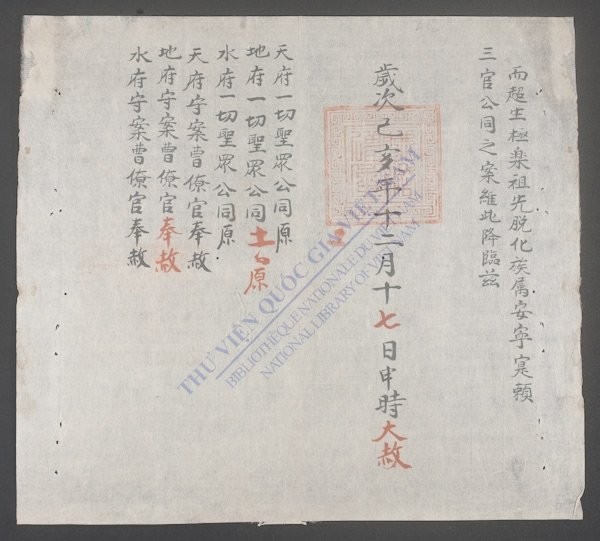 而超生極楽祖先脱化族属安寧寔頼
三官公同之案維此降臨兹
歲次己亥年十二月十七日申時大赦
天府一切聖眾公同原
地府一切聖眾公同原
水府一切聖眾公同原
天府守案曹僚官奉赦
地府守案曹僚官奉赦
水府守案曹僚官奉赦
THƯ VIỆN QUỐC GIA VIỆT NAM
BIBLIOTHÈQUE NATIONALE DU VIETNAM
NATIONAL LIBRARY OF VIETNAM